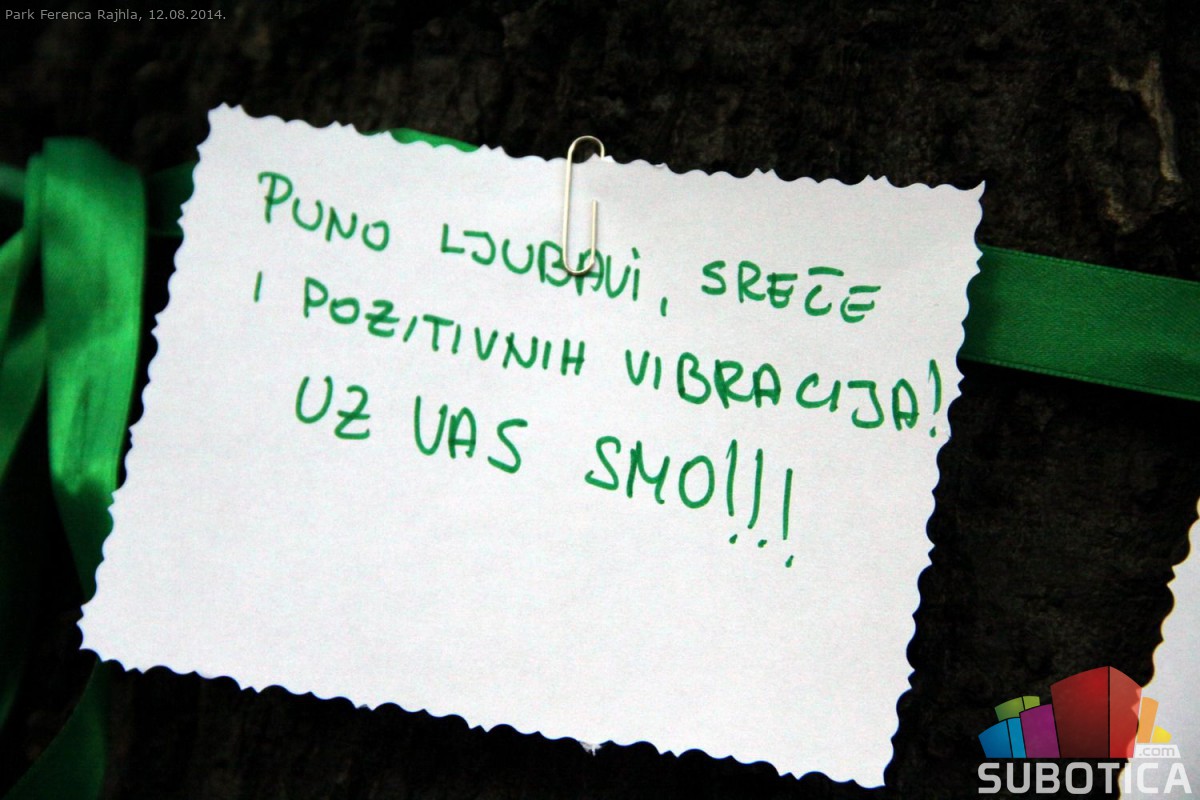 Park Ferenca Rajhla, 12.08.2014.
PUNO LJUBAVi, SREĆE
I POZITIVNIH VIBRACIJA!
UZ VAS SMO!!!
.com
SUBOTICA